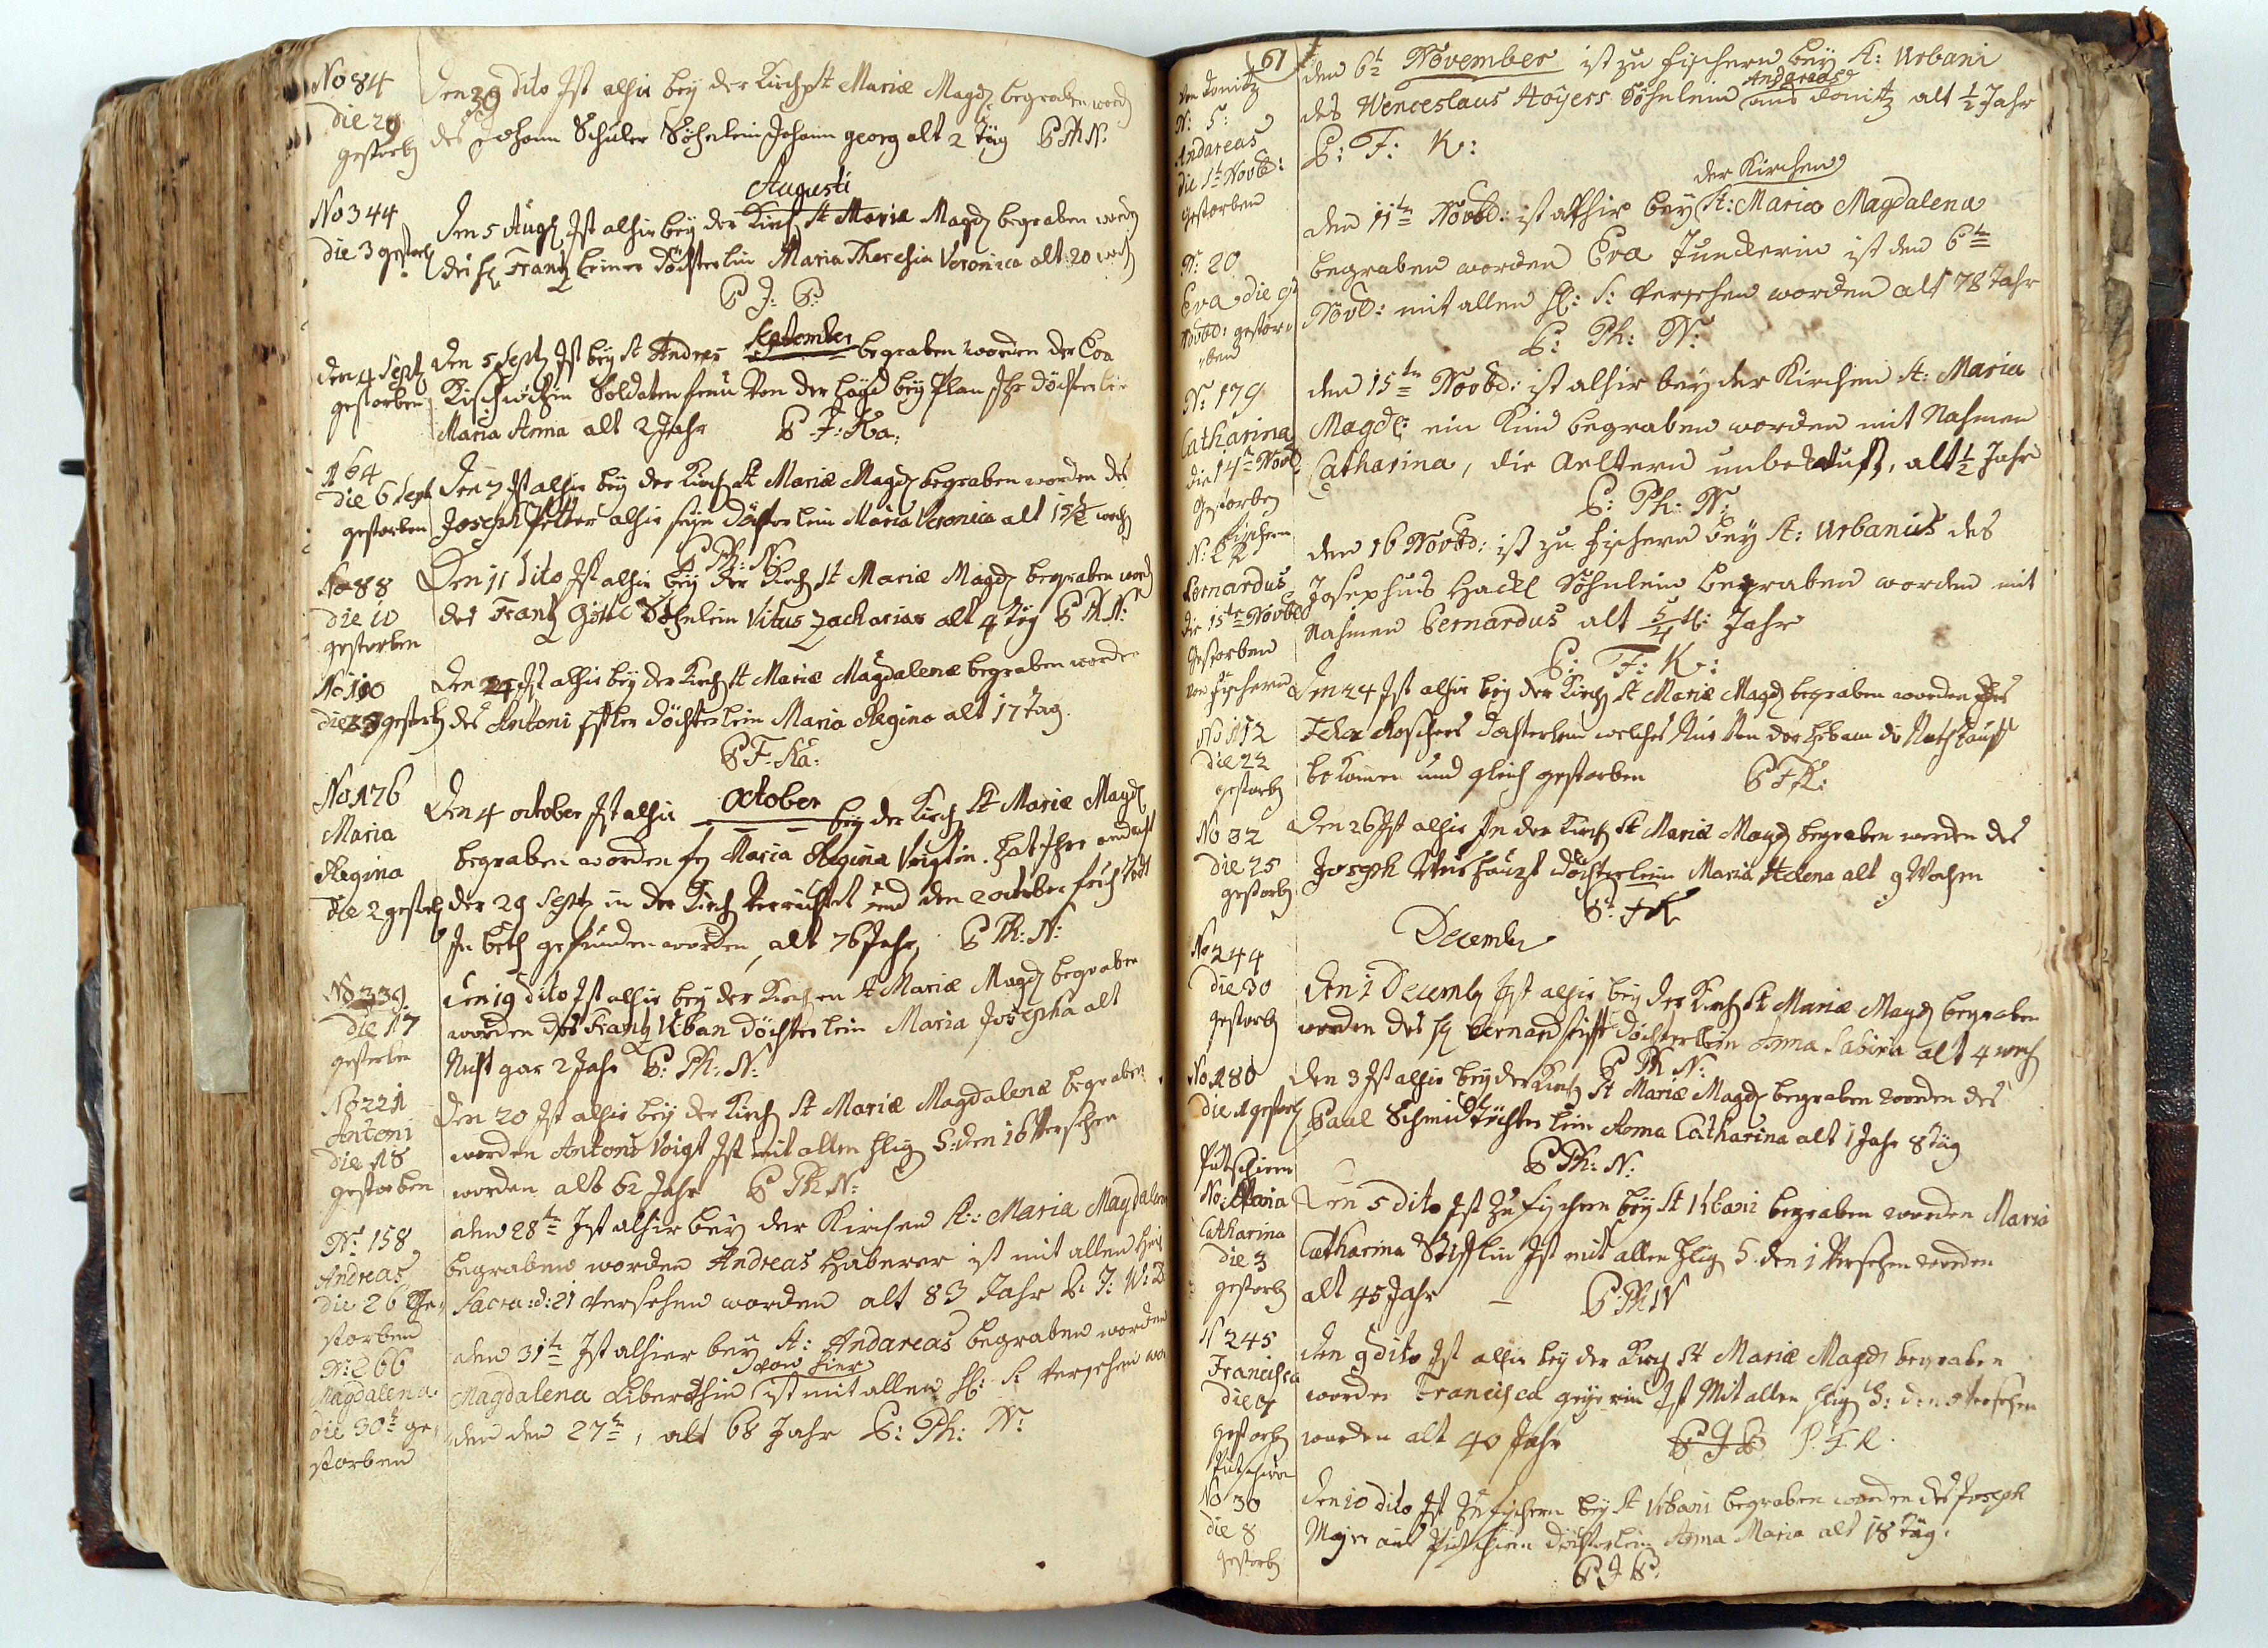 No 84
die 29
gestorb
Den 30 dito Ist alhir bey der Kirch St Mariæ Magd begraben word
des Johann Schuler Söhnlein Johann georg alt 2 täg P Ph N:
Augusti
No 344
die 3 gestorb
Den 5 Aug Ist alhir bey der Kirch St Mariæ Magd begraben word
des H Frantz döchterlein Maria Theresia Veronica alt 20 woch
P J: P:
September
den 4 Sept
gestorben
Den 5 Sept Ist bey St Andres begraben worden der Eva
Soldaten frau Von der Hayd bey Plan Ihr döchterlein
Maria Anna alt 2 Jahr P F: Ka:
N 64
die 6 Sept
gestorben
Den 7 Ist alhir bey der Kirch St Mariæ Magd begraben worden des
Joseph Petter alhir seyn döchterlein Maria Veronica alt 15 ½ woch
P Ph: N:
No 88
die 10
gestorben
Den 11 dito Ist alhir bey der Kirch St Mariæ Magd begraben word
des Frantz Göttl Söhnlein Vitus Zacharias alt 4 täg P Ph N:
No 110
die 23 gestorb
Den 24 Ist alhir bey der Kirch St Mariæ Magdalenæ begraben worden
des Antoni döchterlein Maria Regina alt 17 tag
P F: Ka:
October
No 176
Maria
Regina
die 2 gestorb
Den 4 october Ist alhir bey der Kirch St Mariæ Magd
begraben worden Maria Regina Voigtin. hat Ihre andacht
der 29 Sept in der Kirch Verrichtet und den 2 october früh todt
In beth gefunden worden, alt 76 Jahr, P Ph: N:
No 339
die 17
gestorben
den 19 dito Ist alhir bey der Kirchen St Mariæ Magd begraben
worden des Frantz Urban döchterlein Maria Josepha alt
Nicht gar 2 Jahr P: Ph: N:
No 221
Antoni
die 18
gestorben
Den 20 Ist alhir bey der Kirch St Mariæ Magdalenæ begraben
worden Antoni Voigt Ist mit allen hlig S: den 16 Versehen
worden alt 62 Jahr P Ph N:
No: 158
Andreas
die 26 ge,
storben
den 28tn Ist alhir bey der Kirchen St: Maria Magdalena
begraben worden Andreas Haberer ist mit allen
Sacra: d: 21 Versehen worden alt 83 Jahr
No: 266
Magdalena
die 30t ge,
storben
den 31tn Ist alhier bey St: Andareas begraben worden
Magdalena Liberthin von hier ist mit allen hl: S: Versehen wor
den den 27tn, alt 68 Jahr P: Ph: N:
61
Von Donitz
No: 5:
Andareas
die 1t Novbd:
gestorben
den 6t November ist zu fischern bey St: Urbani
des Wenceslaus Hoÿers Söhnlein Andareas aus donitz alt ½ Jahr
P: F: K:
No: 20
Eva die 9t
Novbd: gestor,
ben
den 11tn Novbd: ist alhir bey der Kirchen St: Maria Magdalena
begraben worden Eva Junckerin ist den 6tn
Novbd: mit allen hl: S: Versehen worden alt 78 Jahr
P: Ph: N:
No: 179
Catharina
die 14t Novb
gestorben
den 15tn Novbd: ist alhir bey der Kirchen St: Maria
Magdl: ein Kind begraben worden mit Nahmen
Catharina, die Aeltern unbekandt, alt ½ Jahr
P: Ph: N:
fischern
Bernardus
die 15tn Novbd
gestorben
den 16 Novbd: ist zu fischern bey St: Urbanus des
Josephus Hackl Söhnlein begraben worden mit
Nahmen Bernardus alt 5/4tl: Jahr
P: F: K:
von fischern
No 112
die 22
gestorb
Den 24 Ist alhir bey der Kirch St Mariæ Magd begraben worden des
Roschers dochterlein welches Nur Von der Hebam die Nothtauff
bekomen und gleich gestorben P F K:
No 32
die 25
gestorb
Den 26 Ist alhir In der Kirch St Mariæ Magd begraben worden des
Joseph döchterlein Maria Helena alt 9 Wochen
P: F K
December
No 244
die 30
gestorb
Den 1 Decemb Ist alhir bey der Kirch St Mariæ Magd begraben
worden des H Bernard döchterlein Anna Sabina alt 4 woch
P Ph N:
No 180
die 1 gestorb
Den 3 Ist alhir bey der Kirch St Mariæ Magd begraben worden des
Paul Schmid töchterlein Anna Catharina alt 1 Jahr 8 täg
P Ph: N:
Putschirn
No: Maria
Catharina
die 3
gestorb
Den 5 dito Ist zu fischern bey St Urbani begraben worden Maria
Catharina Ist mit allen hlig S. den 1 Versehen worden
alt 45 Jahr P: Ph N
N 245
Francisca
die 7
gestorb
Den 9 dito Ist alhir bey der Kirch St Mariæ Magd begraben
worden Francisca geyerin Ist Mit allen hlig S: den Versehen
worden alt 40 Jahr P J P P. F. K.
Putschirn
No 30
die 8
gestorb
Den 10 dito Ist zu fischern bey St Urbani begraben worden des Joseph
Mayer aus Putschirn döchterlein Anna Maria alt 18 täg.
P J P: